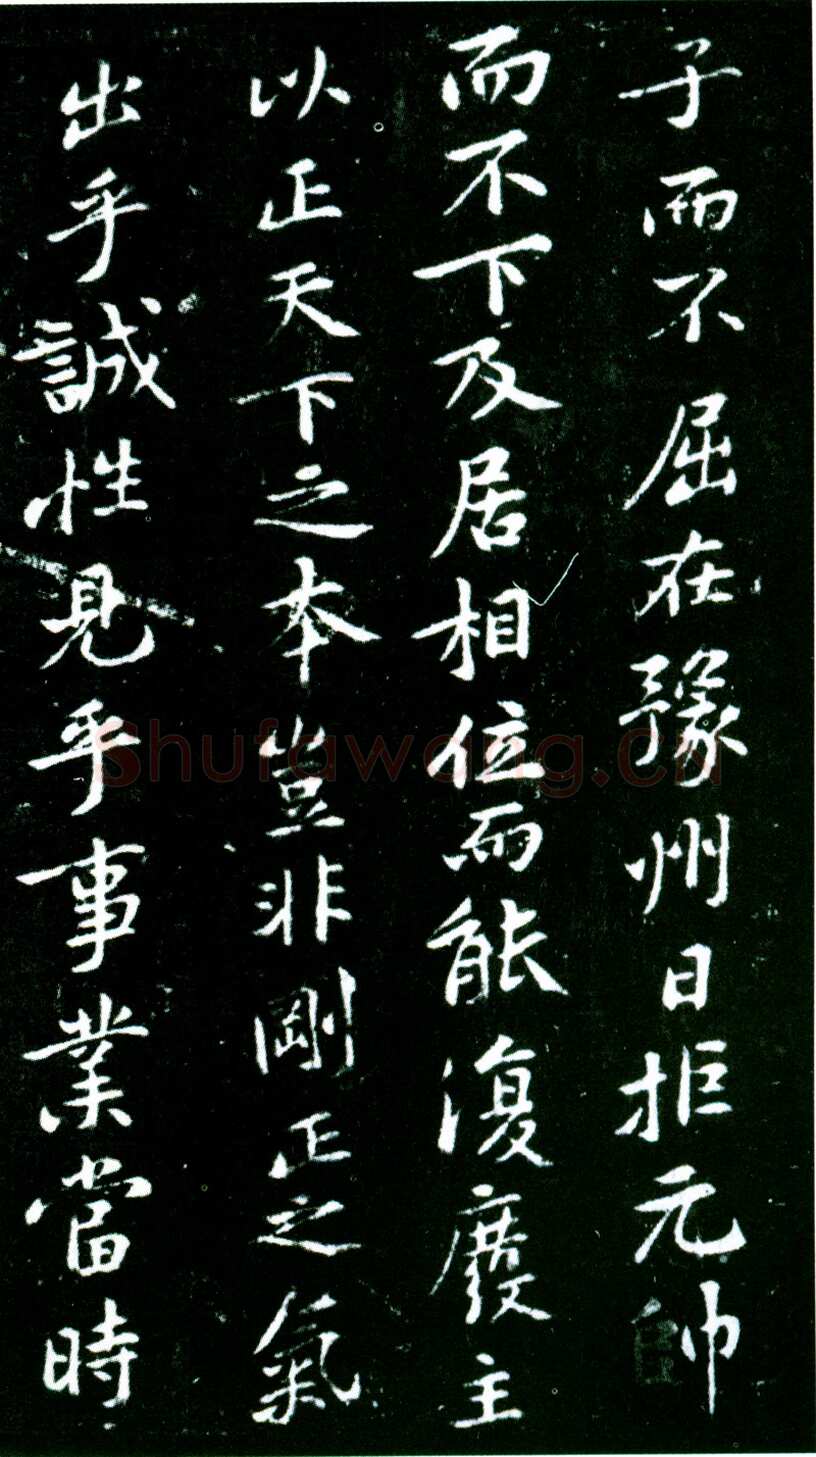 子而不屈在豫州日拒元帥
而不下及居相位而能復廢主
以正天下之本豈非剛正之氣
出乎誠性見乎事業當時
Shufawang.cn